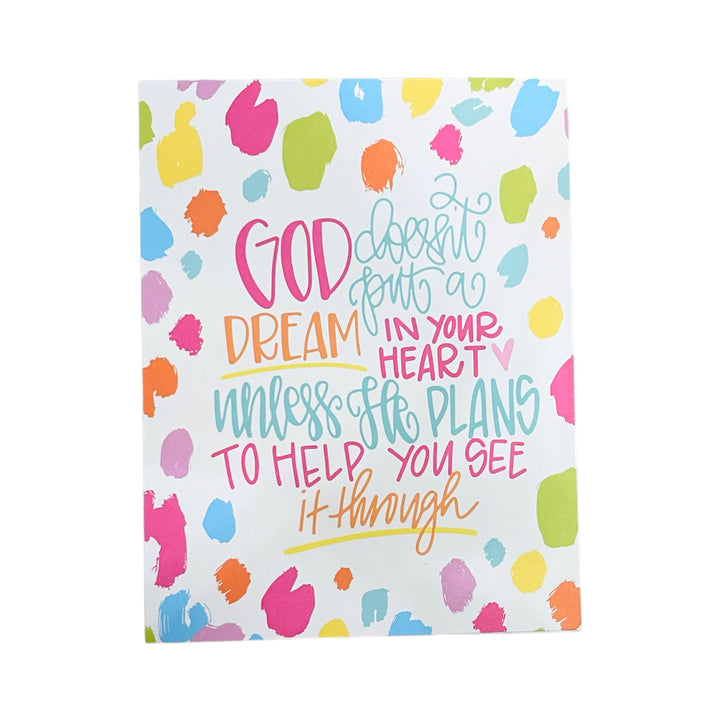 GOD doesn't
put a
DREAM IN YOUR
HEART
unless He PLANS
TO HELP YOU SEE
it through